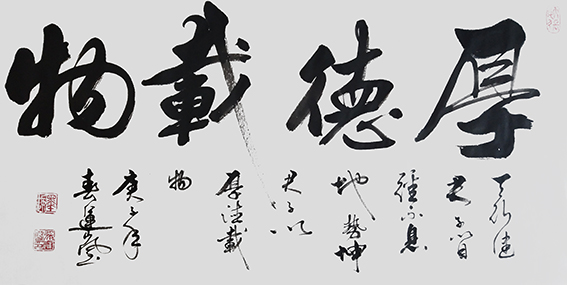 厚德載物
天行健
君子自
强不息
地勢坤
君子以
厚德載
物
庚子年
春